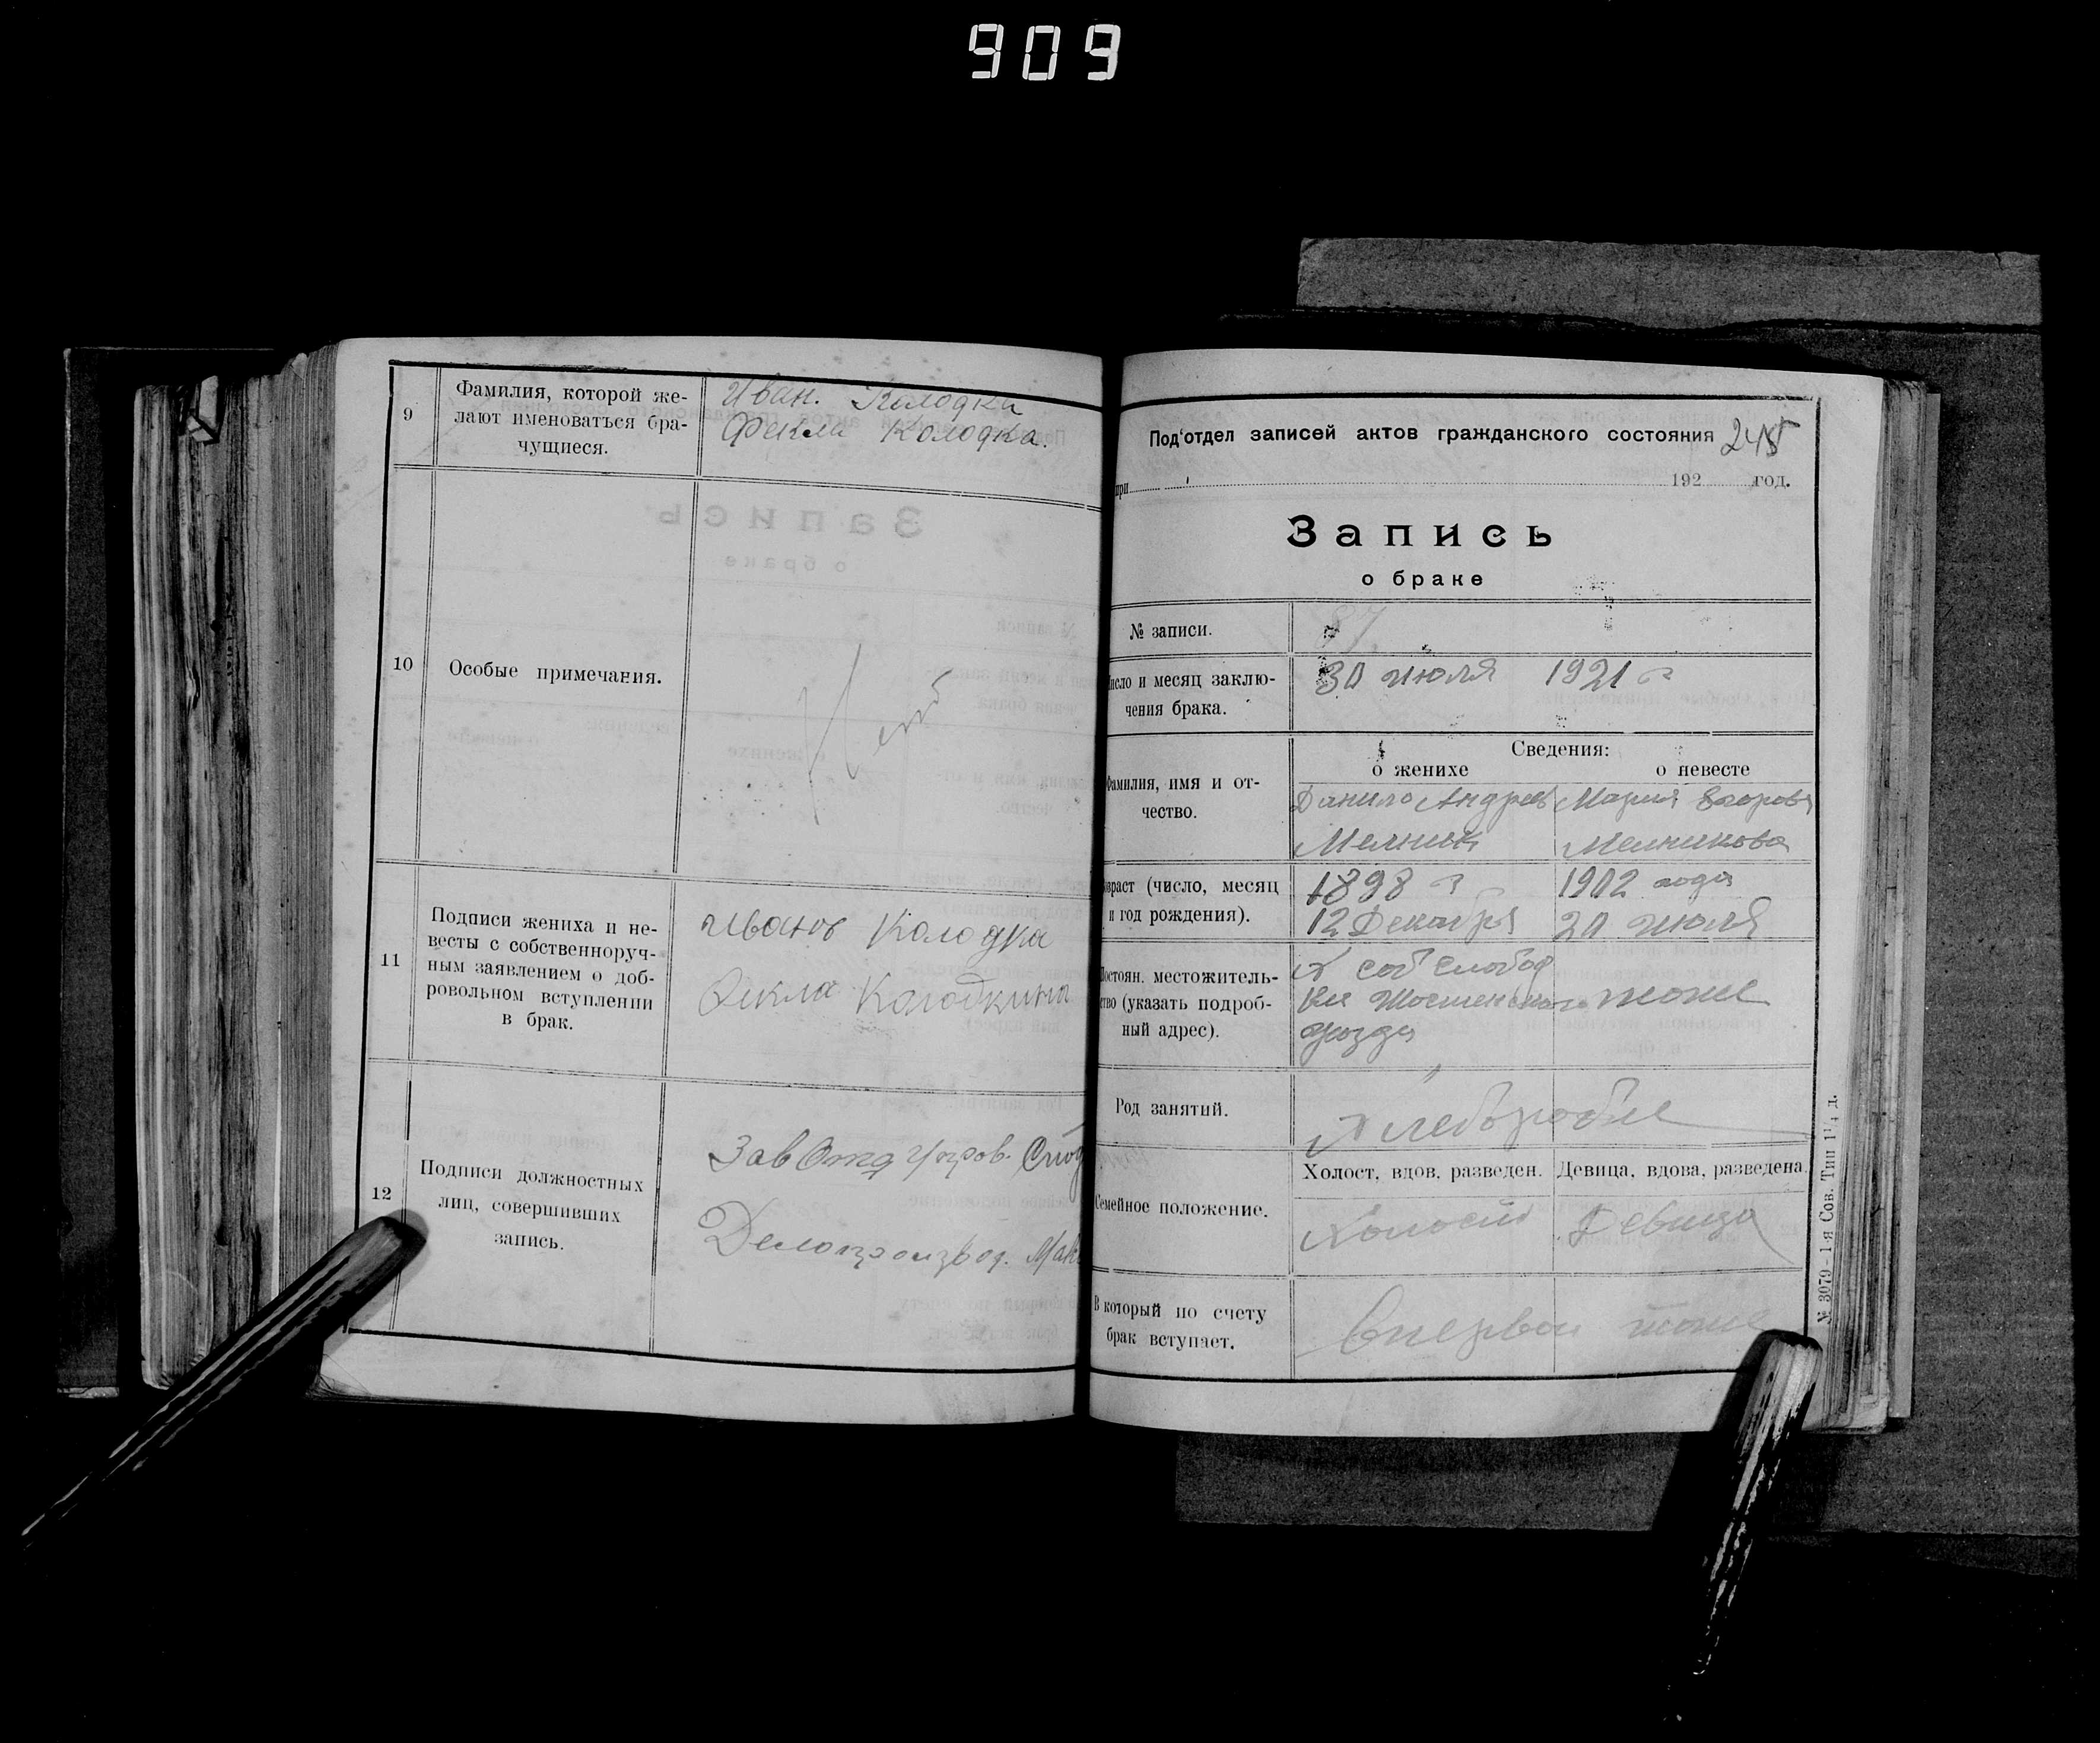 909
9
Фамилия, которой же-
лают именоваться бра-
чущиеся.
Иван. Колодка
Фекла Колодка.
10
Особые примечания.
Нет
11
Подписи жениха и не-
весты с собственноруч-
ным заявлением о доб-
ровольном вступлении
в брак.
Иванъ Колодка
Фекла Колодкина
12
Подписи должностных
лиц, совершивших
запись.
Зав Отд
Делопроизвод.
Под'отдел записей актов гражданского состояния
при 192 год.
Запись
о браке
№ записи.
87
число и месяц заклю-
чения брака.
30 июля 1921 г
Сведения:
о женихе
о невесте
Фамилия, имя и от-
чество.
Данило Андреев
Мелник
Мария Егорова
Мелникова
Возраст (число, месяц
и год рождения).
1898 г
12 Декабря
1902 года
20 июля
Постоян. местожитель-
ство (указать подроб-
ный адрес).
х соб слобод
тоже
Род занятий.
Хлебороб
Семейное положение.
Холост, вдов, разведен.
Девица, вдова, разведена.
Холост
Девица
В который по счету
брак вступает.
Впервои
тоже
№ 3079 - 1-я Сов. Тип